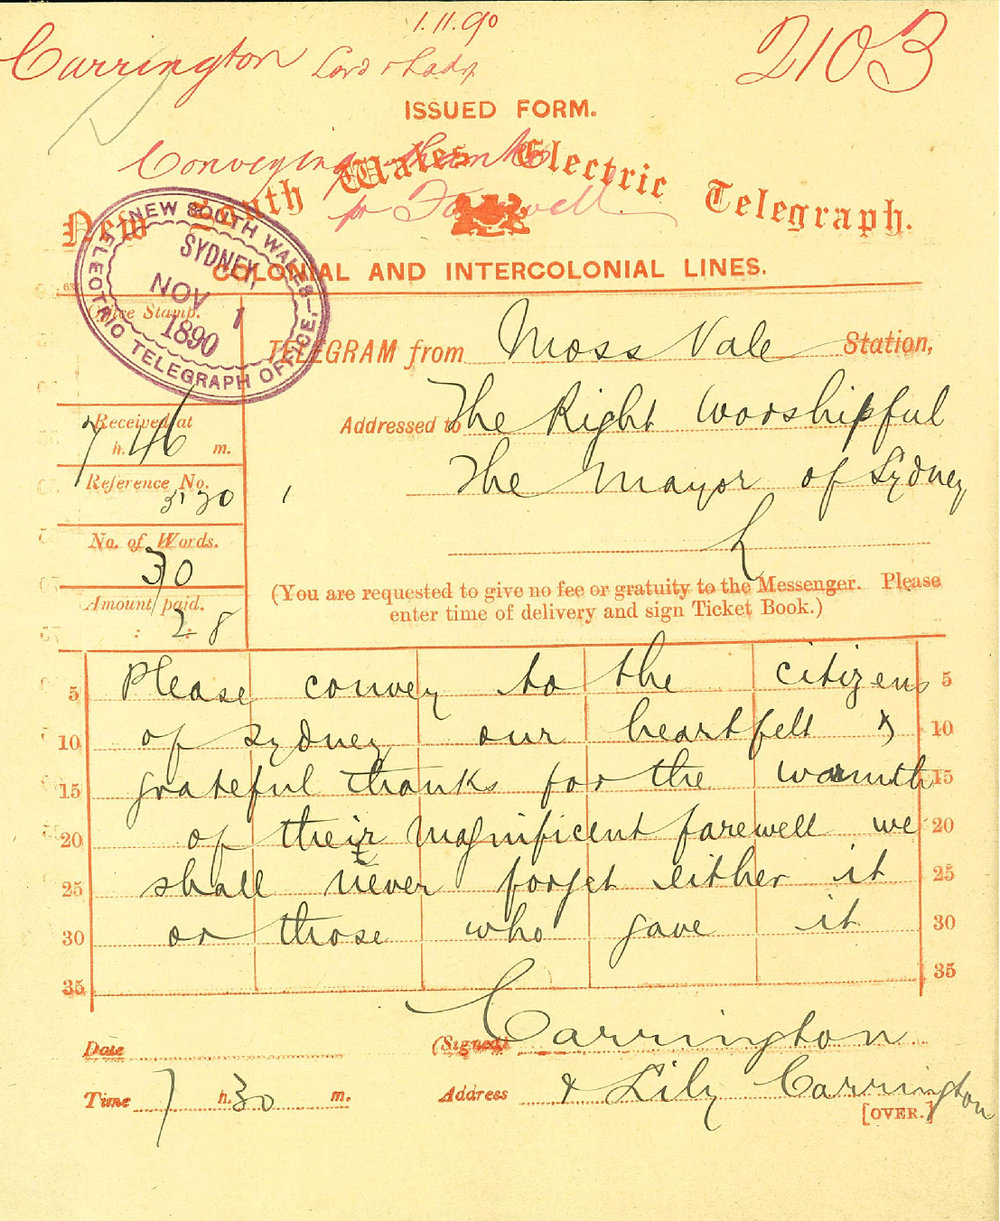 1.11.90
Carrington Lord & Lady
2103
ISSUED FORM.
Conveying thanks
for Farewell.
New South Wales Electric Telegraph.
COLONIAL AND INTERCOLONIAL LINES.
NEW SOUTH WALES
SYDNEY,
NOV 1
1890
ELECTRIC TELEGRAPH OFFICE,
Office Stamp.
TELEGRAM from Moss Vale Station,
Received at
7 h. 46 m.
Addressed to The Right Worshipful
The Mayor of Sydney
Reference No.
5130
No. of Words.
30
Amount paid.
: 2 : 8
(You are requested to give no fee or gratuity to the Messenger. Please
enter time of delivery and sign Ticket Book.)
5 Please convey to the citizens 5
10 of Sydney our heartfelt & 10
15 grateful thanks for the warmth 15
20 of their magnificent farewell we 20
25 shall never forget either it 25
30 or those who gave it 30
35 35
Date (Signed) Carrington
Time 7 h. 30 m. Address & Lily Carrington
[OVER.]